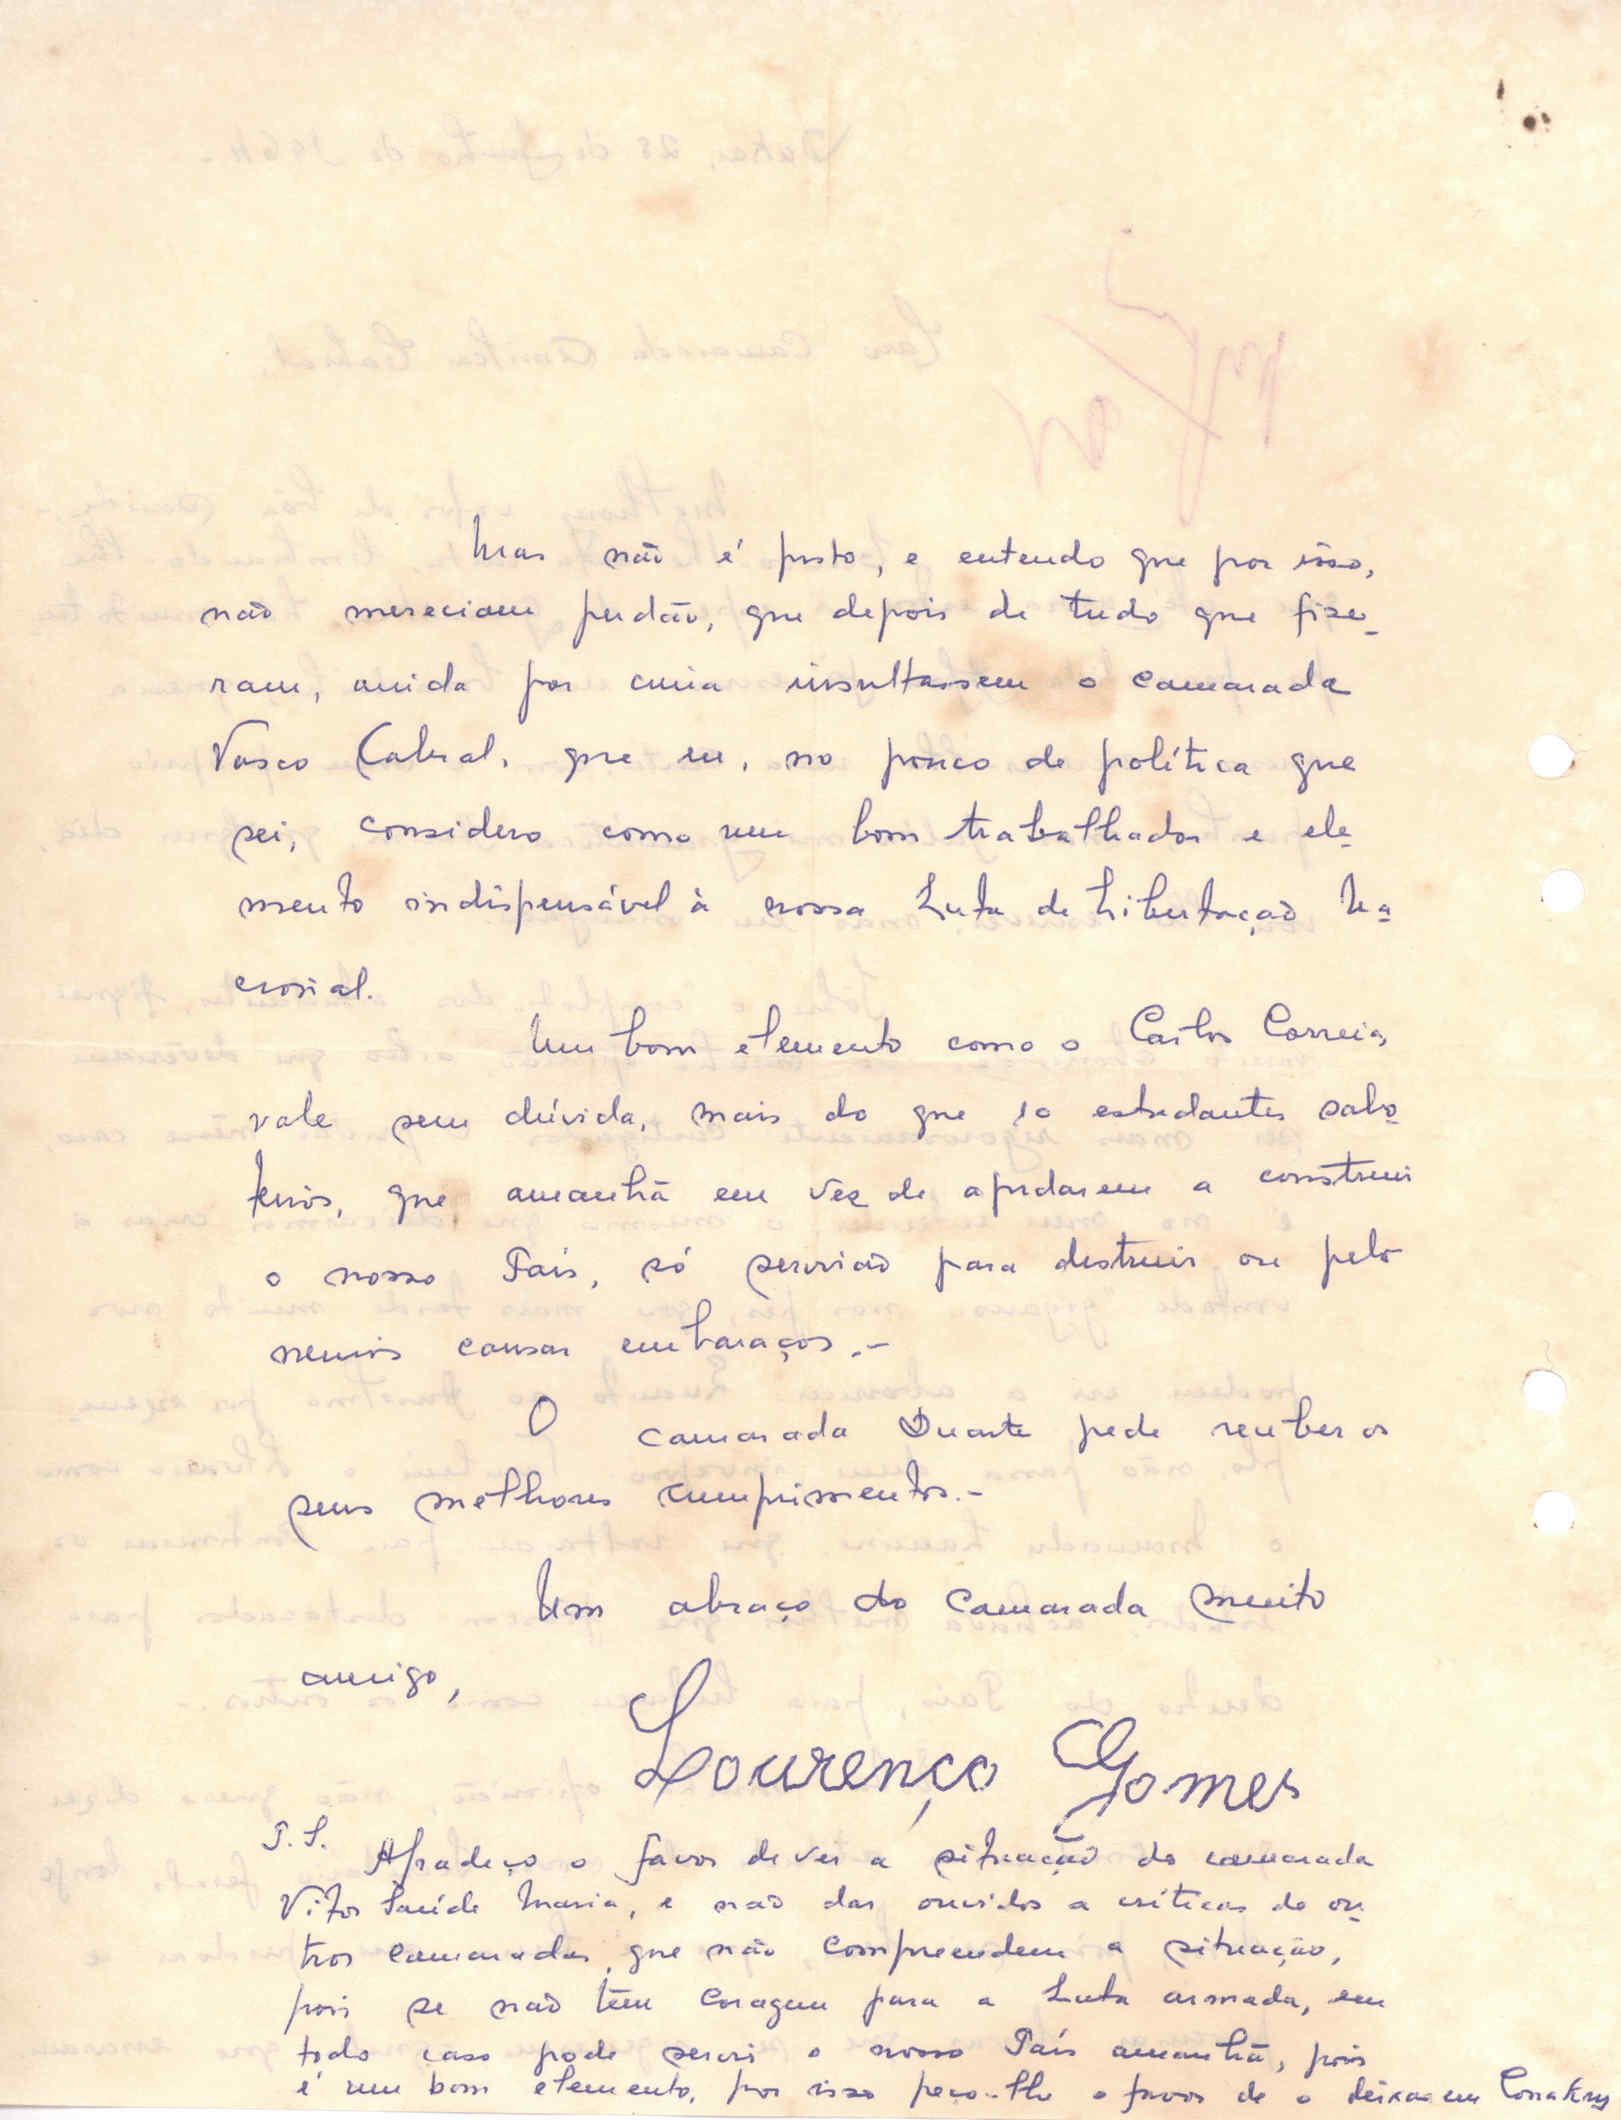 Mas não é justo, e entendo que por isso,
não mereciam perdão, que depois de tudo que fize-
ram, ainda por cima insultassem o camarada
Vasco Cabral, que eu, no pouco de política que
sei, considero como um bom trabalhador e ele-
mento indispensável à nossa Luta de Libertação Na-
cional.
Um bom elemento como o Carlos Correia,
vale sem dúvida, mais do que 10 estudantes sabo-
teiros, que amanhã em vez de ajudarem a construir
o nosso País, só servirão para destruir ou pelo
menos causar embaraços.-
O camarada Duarte pede receber os
seus melhores cumprimentos.-
Um abraço do camarada muito
amigo,
Lourenço Gomes
P.S. Agradeço o favor de ver a situação do camarada
Vitor Saúde Maria, e não dar ouvidos a críticas de ou-
tros camaradas, que não compreendem a situação,
pois se não têm coragem para a Luta armada, em
todo caso pode servir o nosso País amanhã, pois
é um bom elemento, por isso peço-lhe o favor de o deixar em Conakry